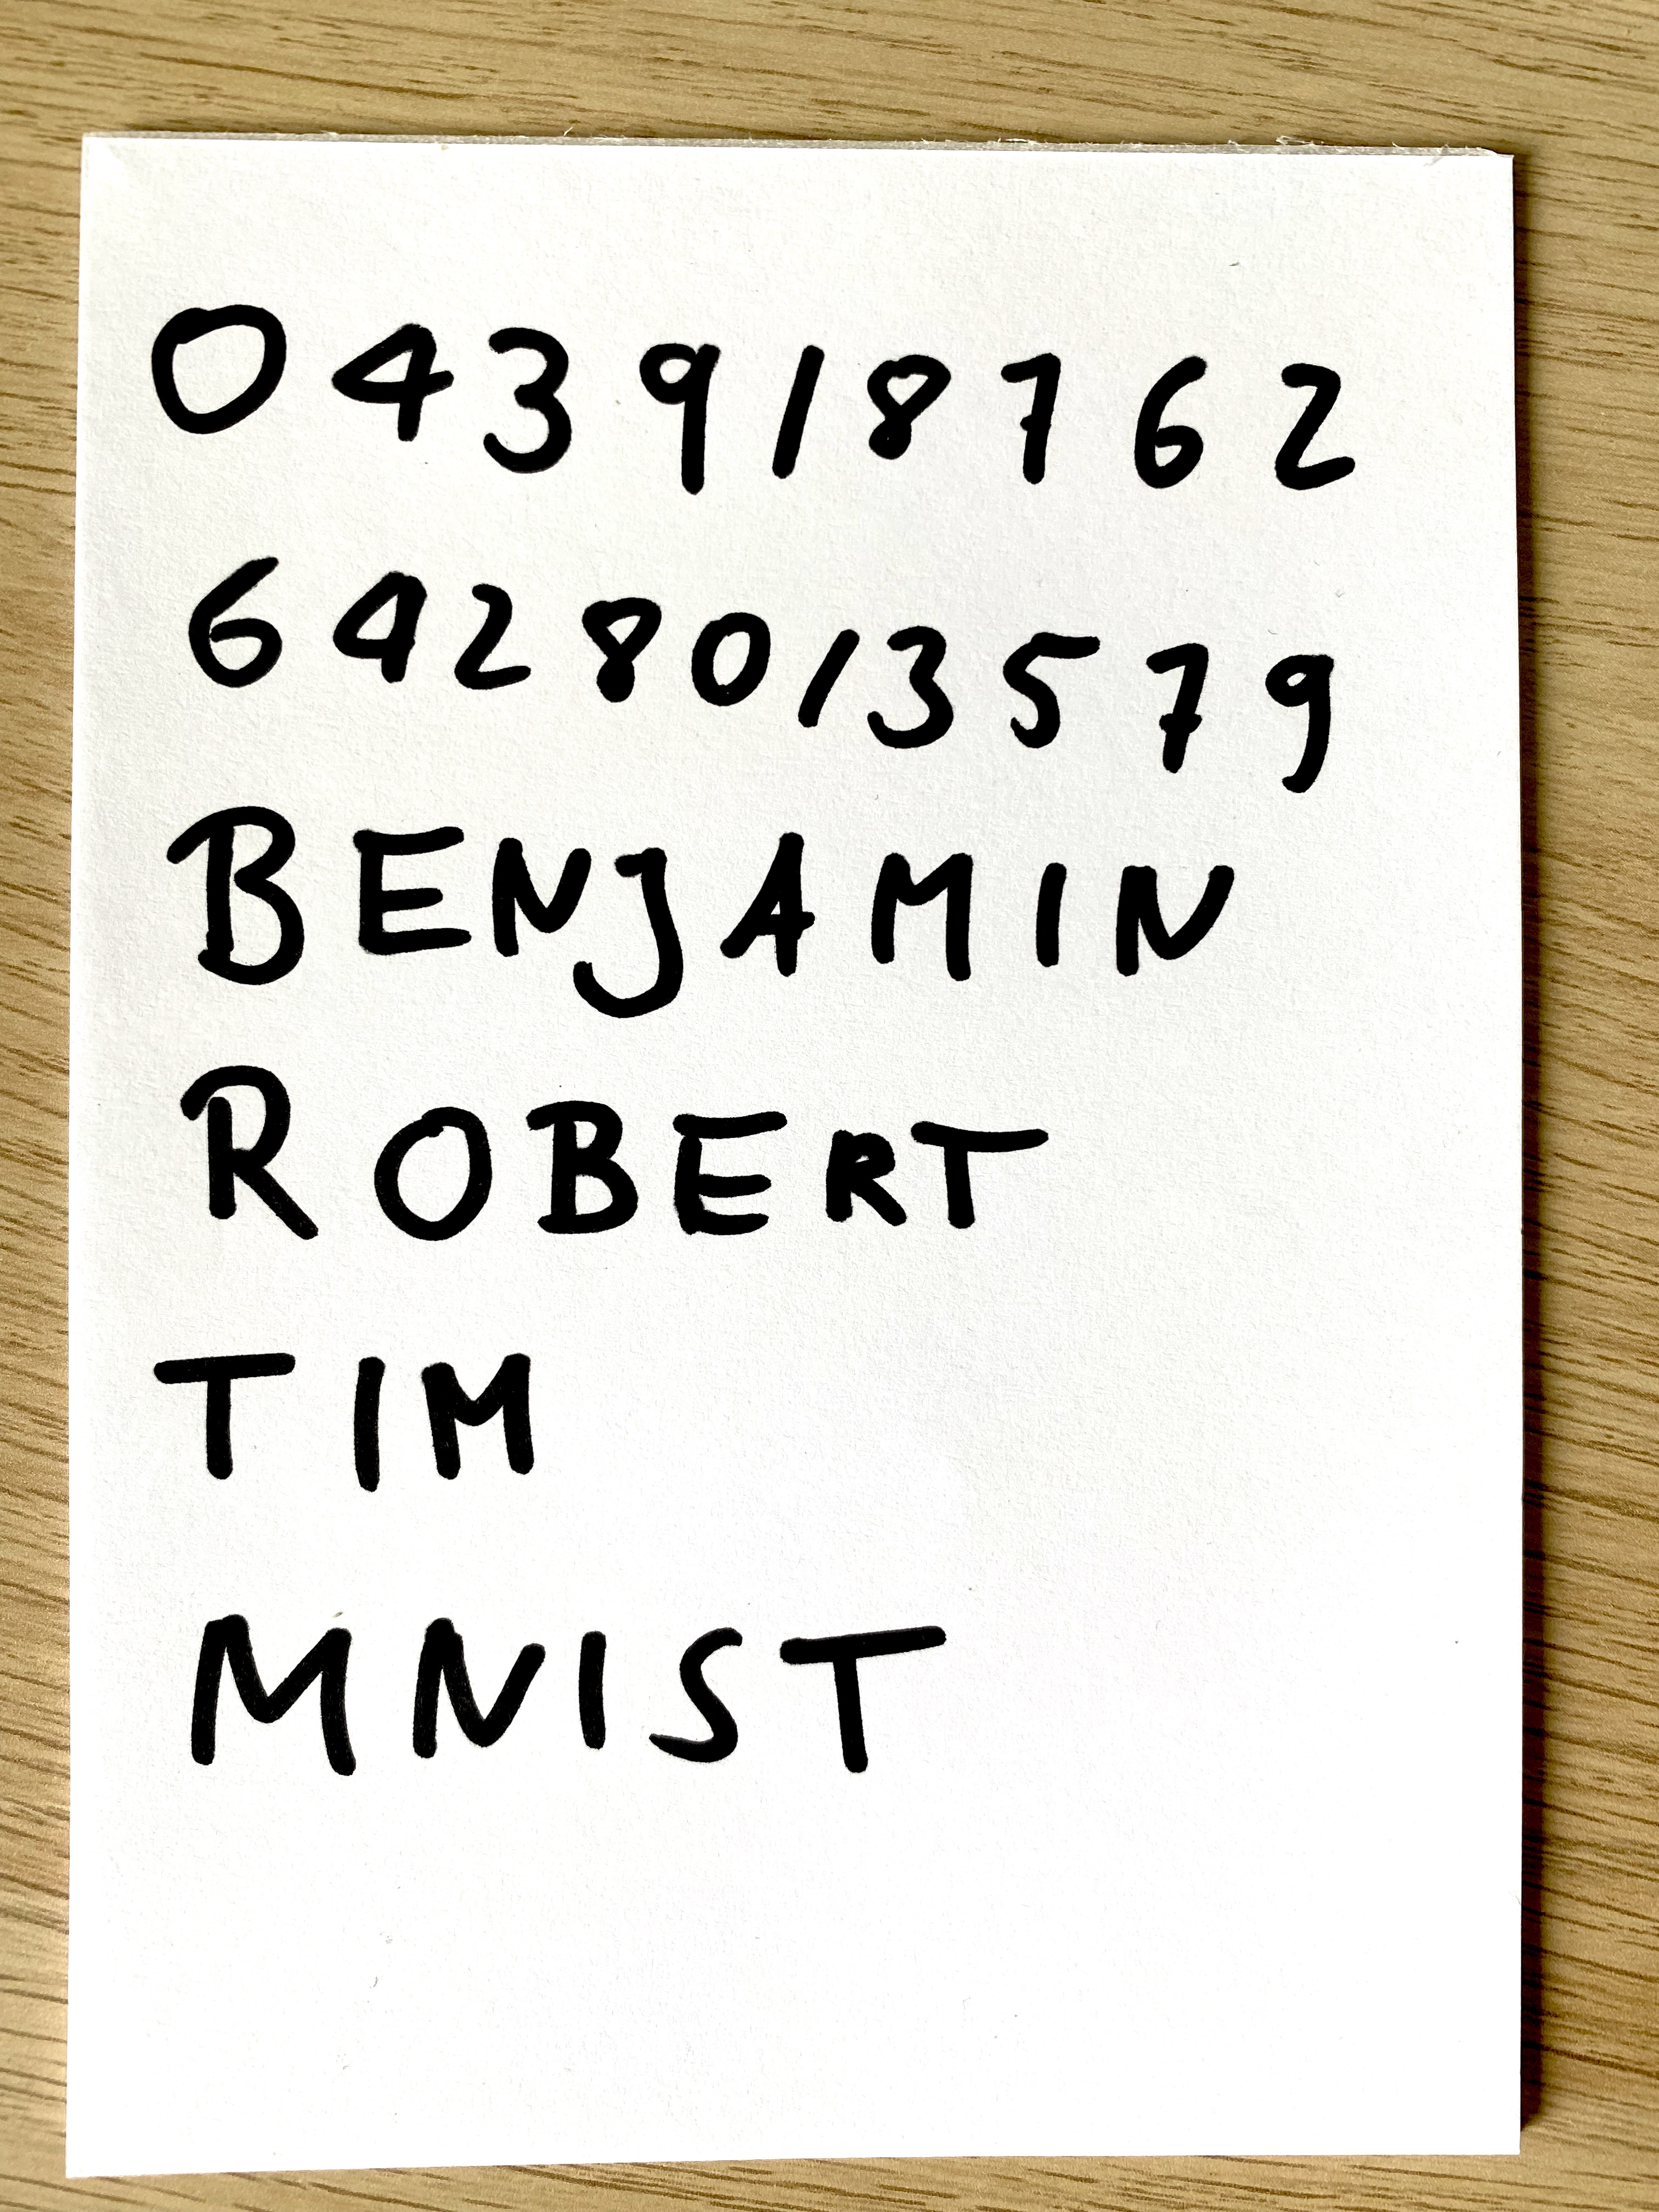 0 4 3 9 1 8 7 6 2
6 4 2 8 0 1 3 5 7 9
BENJAMIN
ROBERT
TIM
MNIST